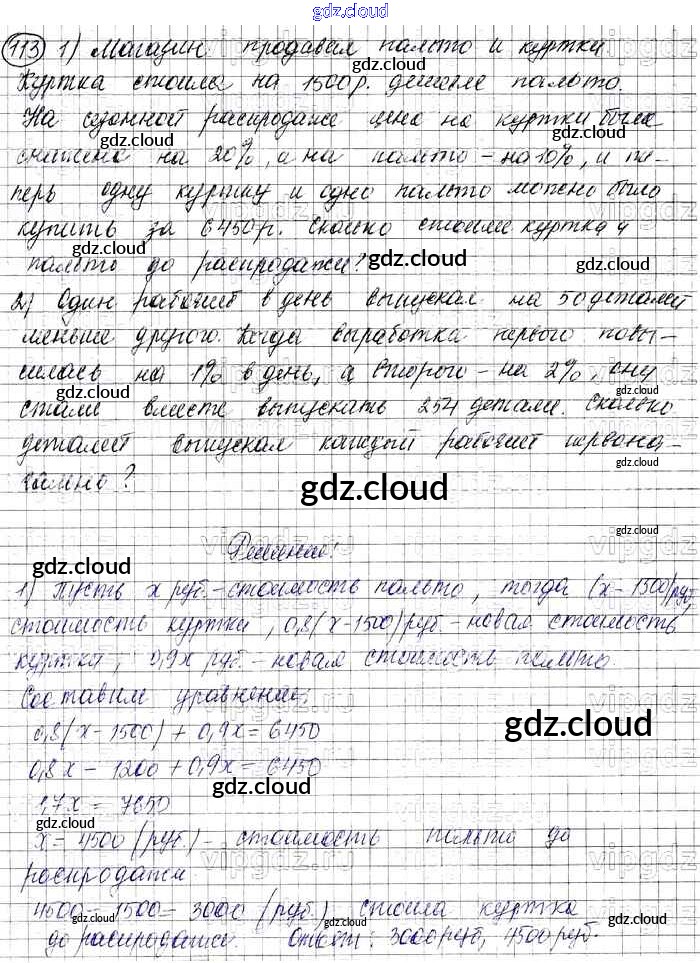 gdz.cloud
113 1) Магазин продавал пальто и куртки.
gdz.cloud
Куртка стоила на 1500 р. дешевле пальто.
На сезонной распродаже цена на куртки была
gdz.cloud
gdz.cloud
снижена на 20%, а на пальто – на 10%, и те-
gdz.cloud
перь одну куртку и одно пальто можно было
купить за 6450 р. Сколько стоили куртка и
gdz.cloud
пальто до распродажи?
gdz.cloud
gdz.cloud
2) Один рабочий в день выпускал на 50 деталей
gdz.cloud
меньше другого. Когда выработка первого повы-
силась на 1% в день, а второго – на 2%, они
gdz.cloud
стали вместе выпускать 254 детали. Сколько
gdz.cloud
деталей выпускал каждый рабочий первона-
gdz.cloud
чально?
gdz.cloud
gdz.cloud
Решение:
gdz.cloud
1) Пусть x руб. – стоимость пальто, тогда (x – 1500) руб.
gdz.cloud
стоимость куртки, 0,8(x – 1500) руб. – новая стоимость
куртки, 0,9x руб. – новая стоимость пальто.
gdz.cloud
Составим уравнение:
gdz.cloud
0,8(x – 1500) + 0,9x = 6450
gdz.cloud
0,8x – 1200 + 0,9x = 6450
gdz.cloud
1,7x = 7650
gdz.cloud
x = 4500 (руб.) – стоимость пальто до
gdz.cloud
распродажи
4500 – 1500 = 3000 (руб.) стоила куртка
gdz.cloud
gdz.cloud
до распродажи. Ответ: 3000 руб, 4500 руб.
gdz.cloud